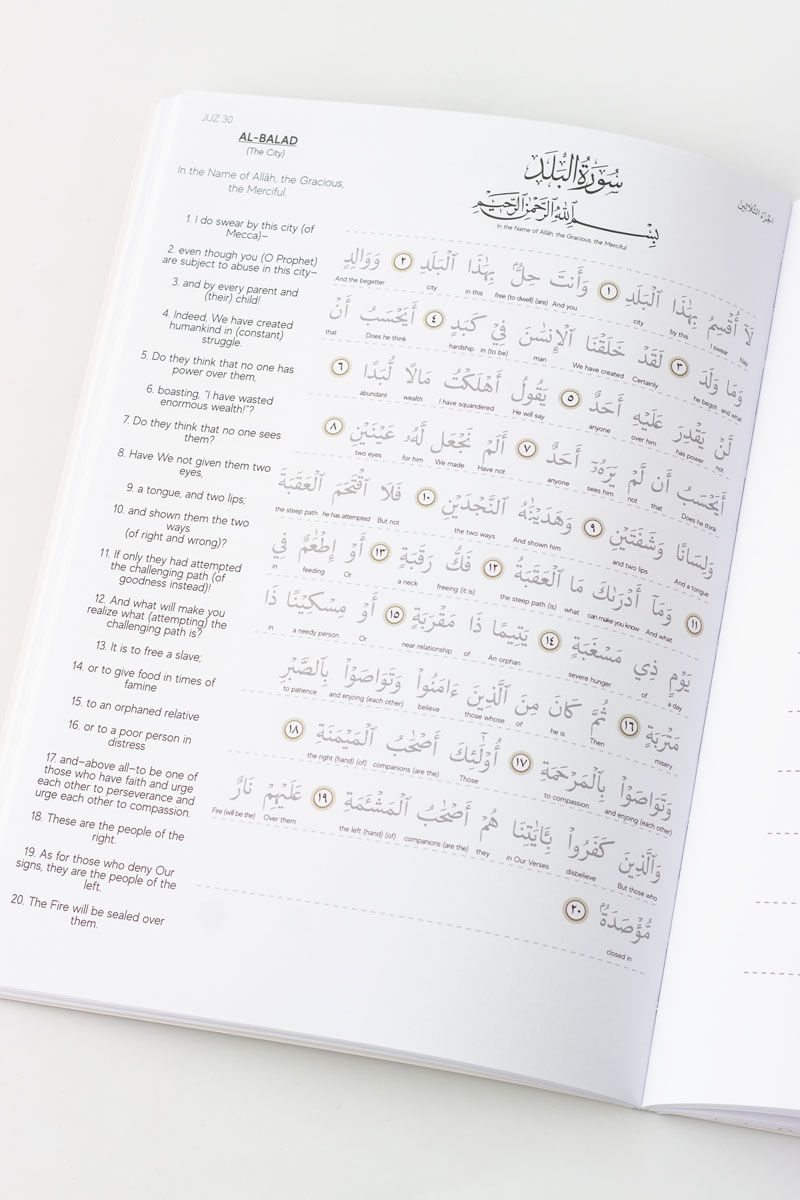 JUZ 30
الجزء الثلاثين
AL-BALAD
(The City)
In the Name of Allāh, the Gracious,
the Merciful.
1. I do swear by this city (of
Mecca)–
2. even though you (O Prophet)
are subject to abuse in this city–
3. and by every parent and
(their) child!
4. Indeed, We have created
humankind in (constant)
struggle.
5. Do they think that no one has
power over them,
6. boasting, "I have wasted
enormous wealth!"?
7. Do they think that no one sees
them?
8. Have We not given them two
eyes,
9. a tongue, and two lips;
10. and shown them the two
ways
(of right and wrong)?
11. If only they had attempted
the challenging path (of
goodness instead)!
12. And what will make you
realize what (attempting) the
challenging path is?
13. It is to free a slave;
14. or to give food in times of
famine
15. to an orphaned relative
16. or to a poor person in
distress
17. and–above all–to be one of
those who have faith and urge
each other to perseverance and
urge each other to compassion.
18. These are the people of the
right.
19. As for those who deny Our
signs, they are the people of the
left.
20. The Fire will be sealed over
them.
سُورَةُ البَلَد
بِسْمِ اللهِ الرَّحْمٰنِ الرَّحِيمِ
In the Name of Allāh, the Gracious, the Merciful
لَآ أُقْسِمُ بِهَٰذَا ٱلْبَلَدِ ١ وَأَنتَ حِلٌّۢ بِهَٰذَا ٱلْبَلَدِ ٢ وَوَالِدٍ
Nay I swear by this city And you (are) free (to dwell) in this city And the begetter
وَمَا وَلَدَ ٣ لَقَدْ خَلَقْنَا ٱلْإِنسَٰنَ فِي كَبَدٍ ٤ أَيَحْسَبُ أَن
and what he begot Certainly We have created man (to be) in hardship Does he think that
لَّن يَقْدِرَ عَلَيْهِ أَحَدٌ ٥ يَقُولُ أَهْلَكْتُ مَالًا لُّبَدًا ٦
not has power over him anyone He will say I have squandered wealth abundant
أَيَحْسَبُ أَن لَّمْ يَرَهُۥٓ أَحَدٌ ٧ أَلَمْ نَجْعَل لَّهُۥ عَيْنَيْنِ ٨
Does he think that not sees him anyone Have not We made for him two eyes
وَلِسَانًا وَشَفَتَيْنِ ٩ وَهَدَيْنَٰهُ ٱلنَّجْدَيْنِ ١٠ فَلَا ٱقْتَحَمَ ٱلْعَقَبَةَ
And a tongue and two lips And shown him the two ways But not he has attempted the steep path
١١ وَمَآ أَدْرَىٰكَ مَا ٱلْعَقَبَةُ ١٢ فَكُّ رَقَبَةٍ ١٣ أَوْ إِطْعَٰمٌ فِي
And what can make you know what (is) the steep path (it is) freeing a neck Or feeding in
يَوْمٍ ذِي مَسْغَبَةٍ ١٤ يَتِيمًا ذَا مَقْرَبَةٍ ١٥ أَوْ مِسْكِينًا ذَا
a day of severe hunger An orphan of near relationship Or a needy person in
مَتْرَبَةٍ ١٦ ثُمَّ كَانَ مِنَ ٱلَّذِينَ ءَامَنُوا۟ وَتَوَاصَوْا۟ بِٱلصَّبْرِ
misery Then he is of those whose believe and enjoing (each other) to patience
وَتَوَاصَوْا۟ بِٱلْمَرْحَمَةِ ١٧ أُو۟لَٰٓئِكَ أَصْحَٰبُ ٱلْمَيْمَنَةِ ١٨
and enjoing (each other) to compassion Those (are the) companions (of) the right (hand)
وَٱلَّذِينَ كَفَرُوا۟ بِـَٔايَٰتِنَا هُمْ أَصْحَٰبُ ٱلْمَشْـَٔمَةِ ١٩ عَلَيْهِمْ نَارٌ
But those who disbelieve in Our Verses they (are the) companions (of) the left (hand) Over them Fire (will be the)
مُّؤْصَدَةٌۢ ٢٠
closed in